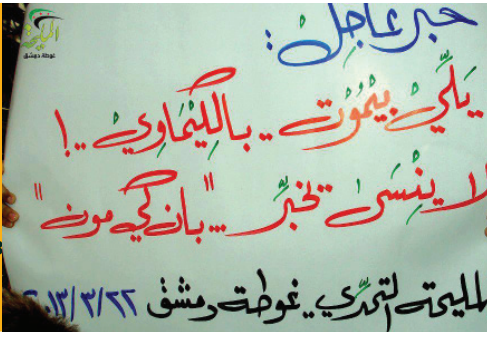 المليحة
غوطة دمشق
خبر عاجل :
يلّي بيْمُوت .. بالكِيْمَاوِيْ .. !
لا يِنْسَى يخبِّر ... "بان كي مون"
المليحة التحدّي . غوطة دمشق ٢٠١٣/٣/٢٢